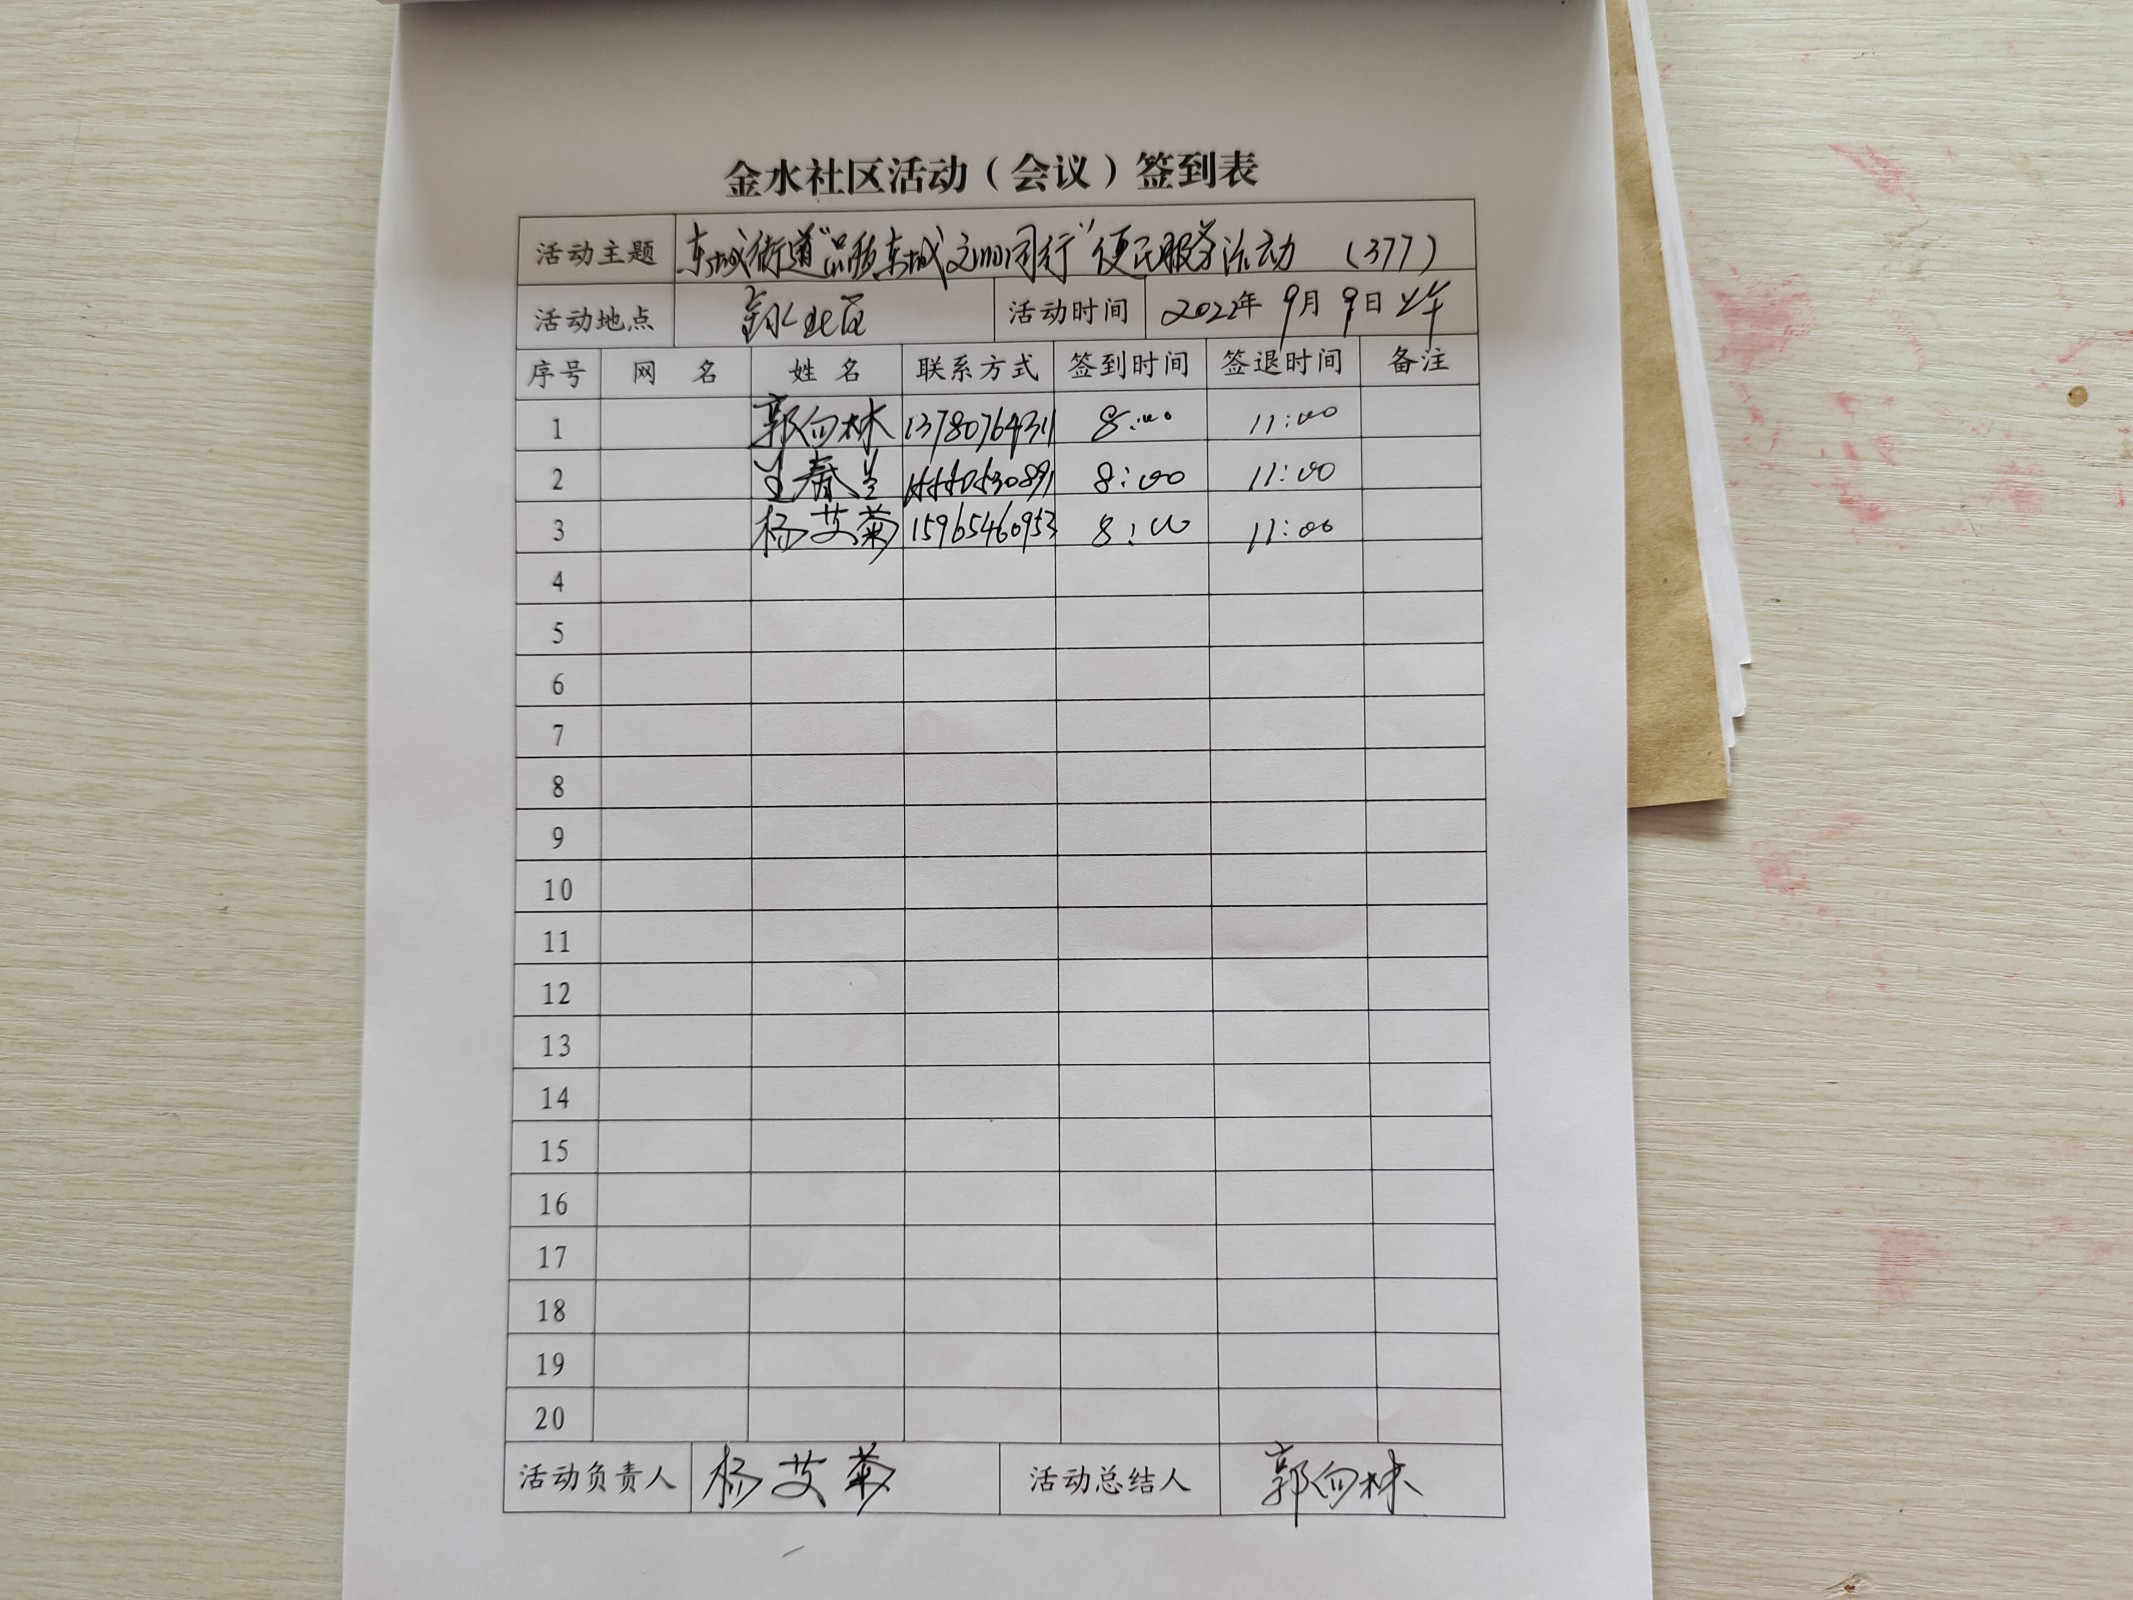 金水社区活动（会议）签到表
活动主题 东城街道“品质东城 文明同行”便民服务活动 （377）
活动地点 金水社区 活动时间 2022年 9月 9日 上午
序号 网 名 姓 名 联系方式 签到时间 签退时间 备注
1 郭向林 13780764311 8:00 11:00
2 王春兰 8:00 11:00
3 杨艾菊 15965460953 8:00 11:00
4
5
6
7
8
9
10
11
12
13
14
15
16
17
18
19
20
活动负责人 杨艾菊 活动总结人 郭向林